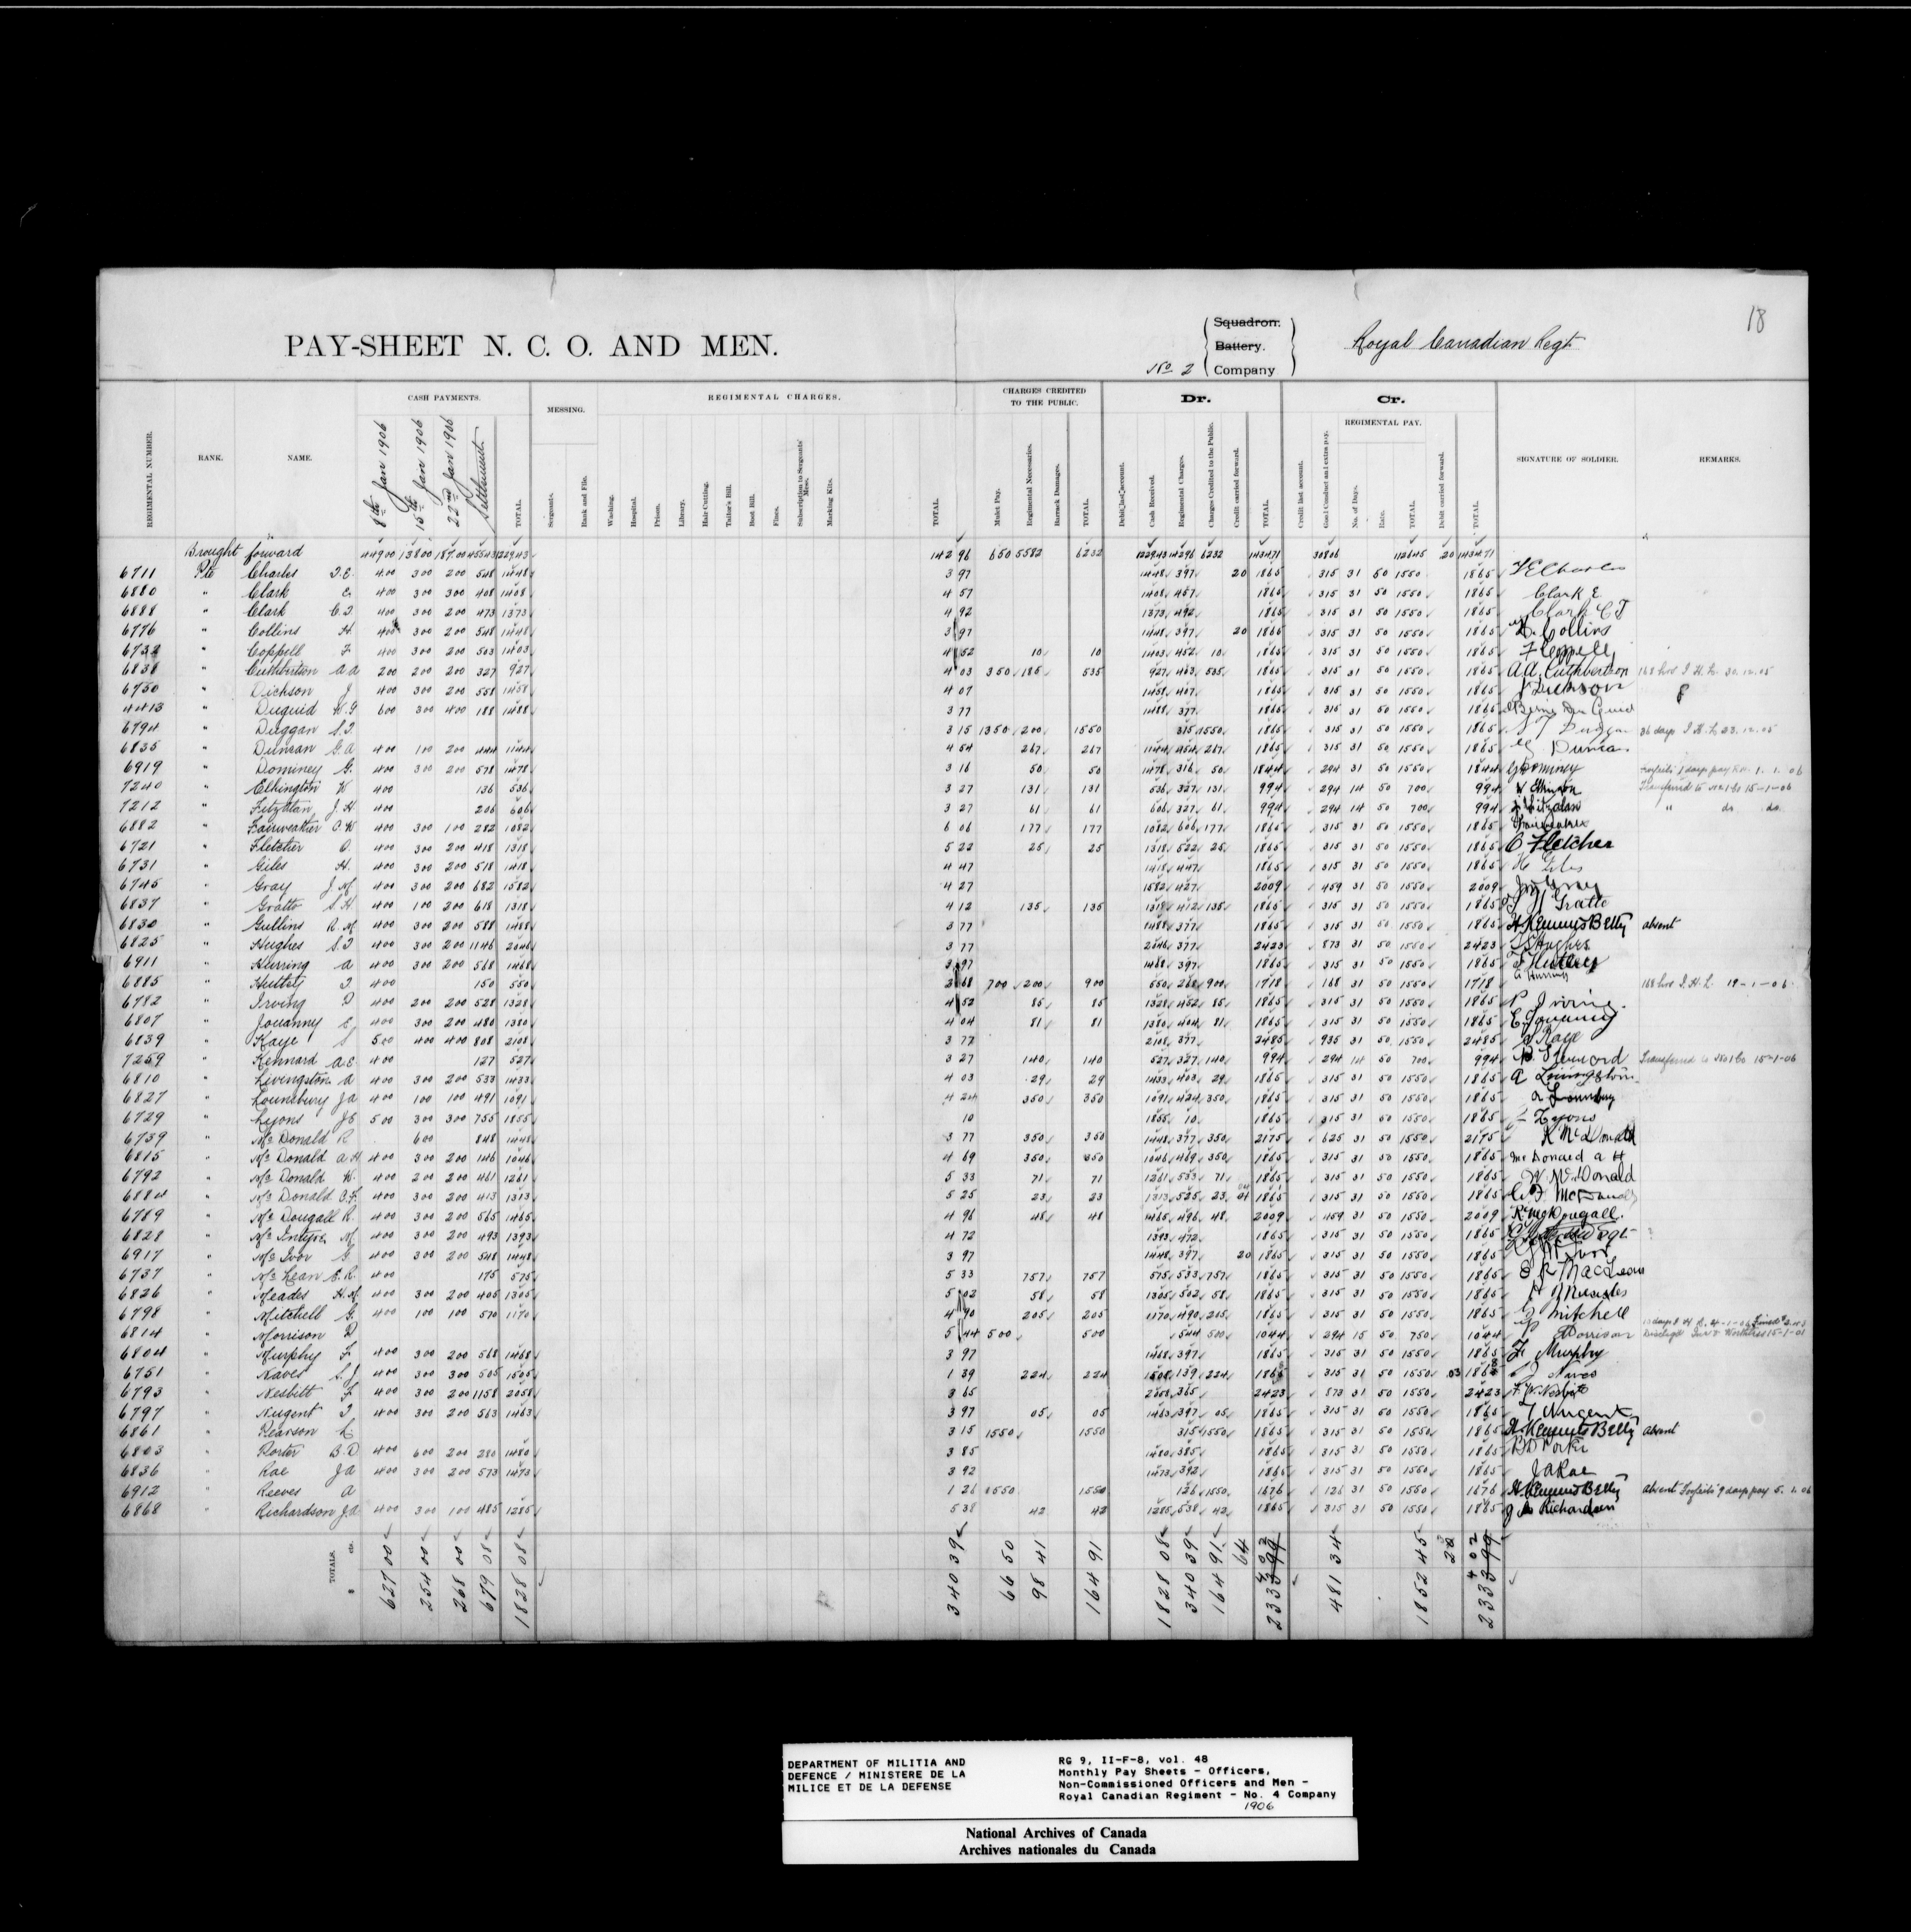 18
PAY-SHEET N. C. O. AND MEN.
No 2 Squadron. Battery. Company
Royal Canadian Regt
REGIMENTAL NUMBER. RANK. NAME. CASH PAYMENTS. MESSING. REGIMENTAL CHARGES. CHARGES CREDITED TO THE PUBLIC. Dr. Cr. REGIMENTAL PAY. SIGNATURE OF SOLDIER. REMARKS.
8th Jan 1906 15th Jan 1906 22nd Jan 1906 Settlement TOTAL. Sergeants. Rank and File. Washing. Hospital. Prison. Library. Hair-Cutting. Tailor's Bill. Boot Bill. Fines. Subscription to Sergeants' Mess. Marking Kits. TOTAL. Mulct Pay. Regimental Necessaries. Barrack Damages. TOTAL. Debit last account. Cash Received. Regimental Charges. Charges Credited to the Public. Credit carried forward. TOTAL. Credit last account. Good Conduct and extra pay. No. of Days. Rate. TOTAL Debit carried forward. TOTAL.
Brought forward 449 00 138 00 187 00 455 43 1229 43 142 96 6 50 55 82 62 32 1229 43 142 96 62 32 1434 71 308 06 1126 45 20 1434 71
6711 Pte Charles 4 00 3 00 2 00 5 48 14 48 3 97 14 48 3 97 20 18 65 3 15 31 50 15 50 18 65
6880 " Clark 4 00 3 00 3 00 4 08 14 08 4 57 14 08 4 57 18 65 3 15 31 50 15 50 18 65 Clark E
6888 " Clark C.T 4 00 3 00 2 00 4 73 13 73 4 92 13 73 4 92 18 65 3 15 31 50 15 50 18 65 Clark C T
6776 " Collins H. 4 00 3 00 2 00 5 48 14 48 3 97 14 48 3 97 20 18 65 3 15 31 50 15 50 18 65 H. Collins
6732 " Coppell F 4 00 3 00 2 00 5 03 14 03 4 52 10 10 14 03 4 52 10 18 65 3 15 31 50 15 50 18 65 F Coppell
6838 " Cuthbertson A A 2 00 2 00 2 00 3 27 9 27 4 03 3 50 1 85 5 35 9 27 4 03 5 35 18 65 3 15 31 50 15 50 18 65 A.A. Cuthbertson 168 hrs I. H. L. 30.12.05
6750 " Dickson J 4 00 3 00 2 00 5 58 14 58 4 07 14 58 4 07 18 65 3 15 31 50 15 50 18 65 J Dickson
4413 " Duguid 6 00 3 00 4 00 1 88 14 88 3 77 14 88 3 77 18 65 3 15 31 50 15 50 18 65
6794 " Duggan S.T. 3 15 13 50 2 00 15 50 3 15 15 50 18 65 3 15 31 50 15 50 18 65 Duggan 36 days I. H. L. 23.12.05
6835 " Duncan G.A 4 00 1 00 2 00 4 44 11 44 4 54 2 67 2 67 11 44 4 54 2 67 18 65 3 15 31 50 15 50 18 65 Duncan
6919 " Dominey G. 4 00 3 00 2 00 5 78 14 78 3 16 50 50 14 78 3 16 50 18 44 2 94 31 50 15 50 18 44 G Dominey Forfeits 1 days pay 1. 1. 06
7240 " Elkington W 4 00 1 36 5 36 3 27 1 31 1 31 5 36 3 27 1 31 9 94 2 94 14 50 7 00 9 94 W Elkington Transferred to No 1 Co 15-1-06
7212 " Fitzallan J.H 4 00 2 06 6 06 3 27 61 61 6 06 3 27 61 9 94 2 94 14 50 7 00 9 94 Fitzalan " do. do.
6882 " Fairweather C.W 4 00 3 00 1 00 2 82 10 82 6 06 1 77 1 77 10 82 6 06 1 77 18 65 3 15 31 50 15 50 18 65 Fairweather
6721 " Fletcher C. 4 00 3 00 2 00 4 18 13 18 5 22 25 25 13 18 5 22 25 18 65 3 15 31 50 15 50 18 65 C Fletcher
6731 " Giles H. 4 00 3 00 2 00 5 18 14 18 4 47 14 18 4 47 18 65 3 15 31 50 15 50 18 65 H Giles
6745 " Gray J.M 4 00 3 00 2 00 6 82 15 82 4 27 15 82 4 27 20 09 4 59 31 50 15 50 20 09 J M Gray
6837 " Gratto S.H 4 00 1 00 2 00 6 18 13 18 4 12 1 35 1 35 13 18 4 12 1 35 18 65 3 15 31 50 15 50 18 65 S H Gratto
6830 " Gullins R.M 4 00 3 00 2 00 5 88 14 88 3 77 14 88 3 77 18 65 3 15 31 50 15 50 18 65 H Kemmis Betty absent
6825 " Hughes S.T 4 00 3 00 2 00 11 46 20 46 3 77 20 46 3 77 24 23 8 73 31 50 15 50 24 23 Hughes
6911 " Hurring A 4 00 3 00 2 00 5 68 14 68 3 97 14 68 3 97 18 65 3 15 31 50 15 50 18 65 Huttey
6885 " Huttey T 4 00 1 50 5 50 2 68 7 00 2 00 9 00 5 50 2 68 9 00 17 18 1 68 31 50 15 50 17 18 A Hurring 168 hrs I. H. L. 19-1-06
6782 " Irving P 4 00 2 00 2 00 5 28 13 28 4 52 85 85 13 28 4 52 85 18 65 3 15 31 50 15 50 18 65 P Irving
6807 " Jouanny E 4 00 3 00 2 00 4 80 13 80 4 04 81 81 13 80 4 04 81 18 65 3 15 31 50 15 50 18 65 E Jouanny
6839 " Kaye S 5 00 4 00 4 00 8 08 21 08 3 77 21 08 3 77 24 85 9 35 31 50 15 50 24 85 S Kaye
7259 " Kennard A.E. 4 00 1 27 5 27 3 27 1 40 1 40 5 27 3 27 1 40 9 94 2 94 14 50 7 00 9 94 Kennard Transferred to No 1 Co 15-1-06
6810 " Livingstone A 4 00 3 00 2 00 5 33 14 33 4 03 29 29 14 33 4 03 29 18 65 3 15 31 50 15 50 18 65 A Livingstone
6827 " Lounsbury J A 4 00 1 00 1 00 4 91 10 91 4 24 3 50 3 50 10 91 4 24 3 50 18 65 3 15 31 50 15 50 18 65 Lounsbury
6729 " Lyons J E 5 00 3 00 3 00 7 55 18 55 10 18 55 10 18 65 3 15 31 50 15 50 18 65 Lyons
6739 " McDonald R 6 00 8 48 14 48 3 77 3 50 3 50 14 48 3 77 3 50 21 75 6 25 31 50 15 50 21 75 R McDonald
6815 " McDonald A H 4 00 3 00 2 00 1 46 10 46 4 69 3 50 3 50 10 46 4 69 3 50 18 65 3 15 31 50 15 50 18 65 Mc Donald A H
6792 " McDonald W. 4 00 2 00 2 00 4 61 12 61 5 33 71 71 12 61 5 33 71 18 65 3 15 31 50 15 50 18 65 W. McDonald
6884 " McDonald C.F. 4 00 3 00 2 00 4 13 13 13 5 25 23 23 13 13 5 25 23 04 18 65 3 15 31 50 15 50 18 65 C. F. McDonald
6789 " McDougall R. 4 00 3 00 2 00 5 65 14 65 4 96 48 48 14 65 4 96 48 20 09 4 59 31 50 15 50 20 09 R McDougall.
6828 " McIntyre M 4 00 3 00 2 00 4 93 13 93 4 72 13 93 4 72 18 65 3 15 31 50 15 50 18 65
6917 " McIvor G 4 00 3 00 2 00 5 48 14 48 3 97 14 48 3 97 20 18 65 3 15 31 50 15 50 18 65
6737 " McLean E.R. 4 00 1 75 5 75 5 33 7 57 7 57 5 75 5 33 7 57 18 65 3 15 31 50 15 50 18 65 E R MacLean
6826 " Meades H.M 4 00 3 00 2 00 4 05 13 05 5 02 58 58 13 05 5 02 58 18 65 3 15 31 50 15 50 18 65 H M Meades
6798 " Mitchell G. 4 00 1 00 1 00 5 70 11 70 4 90 2 05 2 05 11 70 4 90 2 05 18 65 3 15 31 50 15 50 18 65 G Mitchell
6814 " Morrison P 5 44 5 00 5 00 5 44 5 00 10 44 2 94 15 50 7 50 10 44 P Morrison
6804 " Murphy F. 4 00 3 00 2 00 5 68 14 68 3 97 14 68 3 97 18 65 3 15 31 50 15 50 18 65 F Murphy
6751 " Naves S.J 4 00 3 00 3 00 5 05 15 05 1 39 2 24 2 24 15 05 1 39 2 24 18 68 3 15 31 50 15 50 .03 18 68 Naves
6793 " Nesbitt F 4 00 3 00 2 00 11 58 20 58 3 65 20 58 3 65 24 23 8 73 31 50 15 50 24 23 F. W. Nesbitt
6797 " Nugent T 4 00 3 00 2 00 5 63 14 63 3 97 05 05 14 63 3 97 05 18 65 3 15 31 50 15 50 18 65 T Nugent
6861 " Pearson 3 15 15 50 15 50 3 15 15 50 18 65 3 15 31 50 15 50 18 65 H Kemmis Betty absent
6803 " Porter B.D 4 00 6 00 2 00 2 80 14 80 3 85 14 80 3 85 18 65 3 15 31 50 15 50 18 65 B D Porter
6836 " Rae J A 4 00 3 00 2 00 5 73 14 73 3 92 14 73 3 92 18 65 3 15 31 50 15 50 18 65 J A Rae
6912 " Reeves A 1 26 15 50 15 50 1 26 15 50 16 76 1 26 31 50 15 50 16 76 H Kemmis Betty absent Forfeits 9 days pay 5. 1. 06
6868 " Richardson J A 4 00 3 00 1 00 4 85 12 85 5 38 42 42 12 85 5 38 42 18 65 3 15 31 50 15 50 18 65 J A Richardson
TOTALS. $ cts. 627 00 254 00 268 00 679 08 1828 08 340 39 66 50 98 41 164 91 1828 08 340 39 164 91 64 2333 99 4 02 481 34 1852 45 23 2333 99 4 02
DEPARTMENT OF MILITIA AND
DEFENCE / MINISTERE DE LA
MILICE ET DE LA DEFENSE
RG 9, II-F-8, vol. 48
Monthly Pay Sheets - Officers,
Non-Commissioned Officers and Men -
Royal Canadian Regiment - No. 4 Company
1906
National Archives of Canada
Archives nationales du Canada